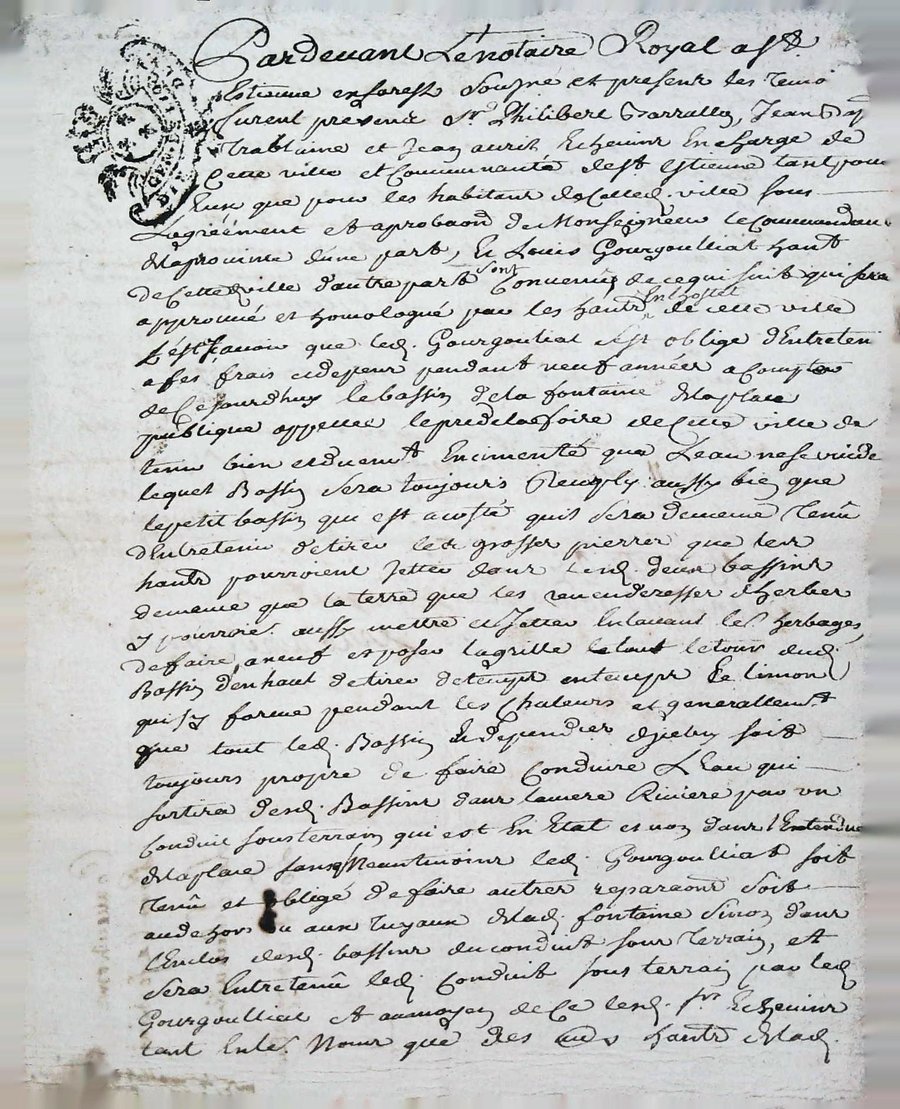 Pardevant Le notaire Royal a St
Estienne en forest Sousne et presens les temo
furent presens Sr. Philibert Jean
et Jean Echevins En charge de
Cette ville et Communauté de St Estienne tant pour
Eux que pour les habitant de Cetted. ville sous
Lagréement et aprobaon de Monseigneur le Commandan
dela province d'une part, Et Louis Gourgoulliat habt
de Cetted. ville d'autre part sont Convenus de ce qui suit qui sera
approuvé et homologué par les habts en l'hostel de cette ville
C'est scavoir que led. Gourgouliat sest obligé d'Entreteni
a ses frais et depens pendant neuf années a Compter
de Cejourd'huy le bassin de la fontaine dela place
publique appellée le pré de la foire de Cette ville de
tenir bien et duemt Encimenté que L'eau ne se vuide
lequel Bassin sera toujours Remply aussy bien que
le petit bassin qui est a costé quil sera de meme tenû
d'Entretenir de tirer les grosses pierres que les
habts pourroient Jetter dans lesd. deux bassins
de meme que la terre que les revenderesses d'herbes
y pourroit. aussy mettre et Jetter En lavant les herbages,
de faire a neuf et poser la grille le tout le tour dud.
Bassin d'en haut de tirer de temps en temps Le limon
qui s'y forme pendant les Chaleurs et generallemt
que tout led. Bassin et dependces d'yceluy soit
toujours propre de faire Conduire L'Eau qui
sortira desd. Bassins dans la Riviere par un
Conduit sousterrain qui est En Etat et non dans l'Entendue
dela place sans Neantmoins led. Gourgoulliat soit
tenû et obligé de faire autres reparaons soit
au dehors ou aux tuyaux delad. fontaine sinon dans
l'Enclos desd. bassins du conduit sous terrain, et
sera Entretenû led. Conduit sous terrain par led.
Gourgoulliat Et au moyen de Ce lesd. Srs Echevins
tant En les. Noms que des habts delad.